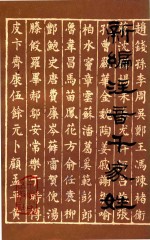 新編注音百家姓
趙錢孫李周吳鄭王馮陳褚衛
孔曹嚴華金魏陶姜戚謝鄒喻
柏水竇章雲蘇潘葛奚范彭郎
魯韋昌馬苗鳳花方俞任袁柳
酆鮑史唐費廉岑薛雷賀倪湯
滕殷羅畢郝鄔安常樂于時傅
皮卞齊康伍余元卜顧孟平黃